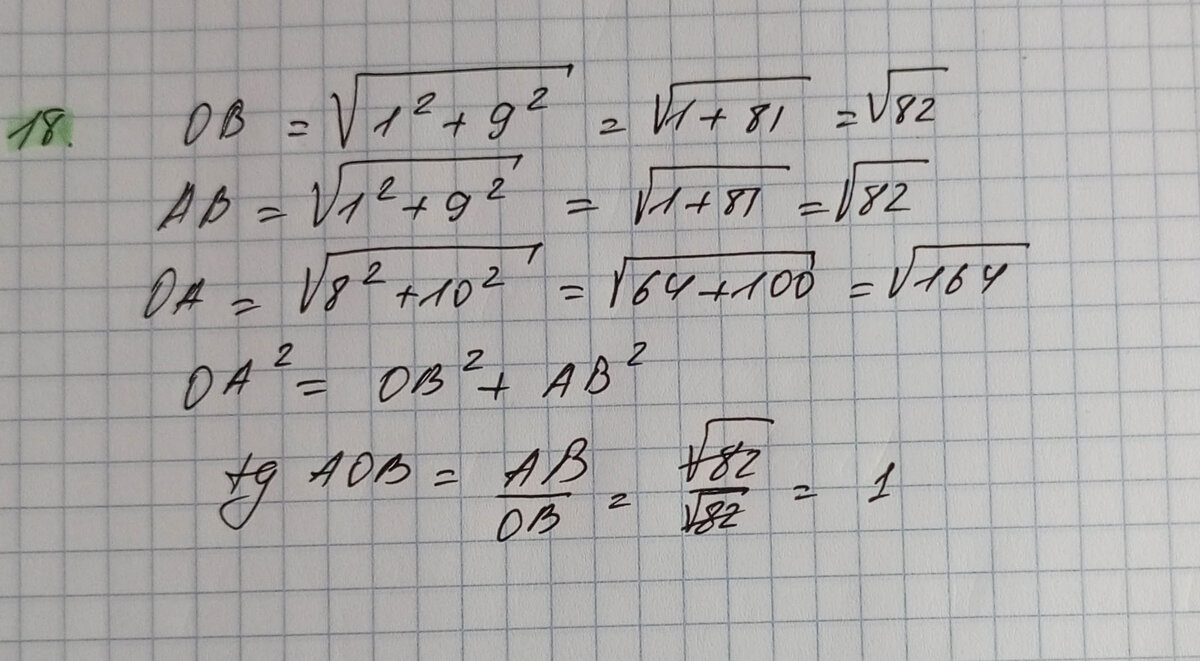 18. OB = √(1² + 9²) = √(1 + 81) = √82
AB = √(1² + 9²) = √(1 + 81) = √82
OA = √(8² + 10²) = √(64 + 100) = √164
OA² = OB² + AB²
tg AOB = AB/OB = √82/√82 = 1